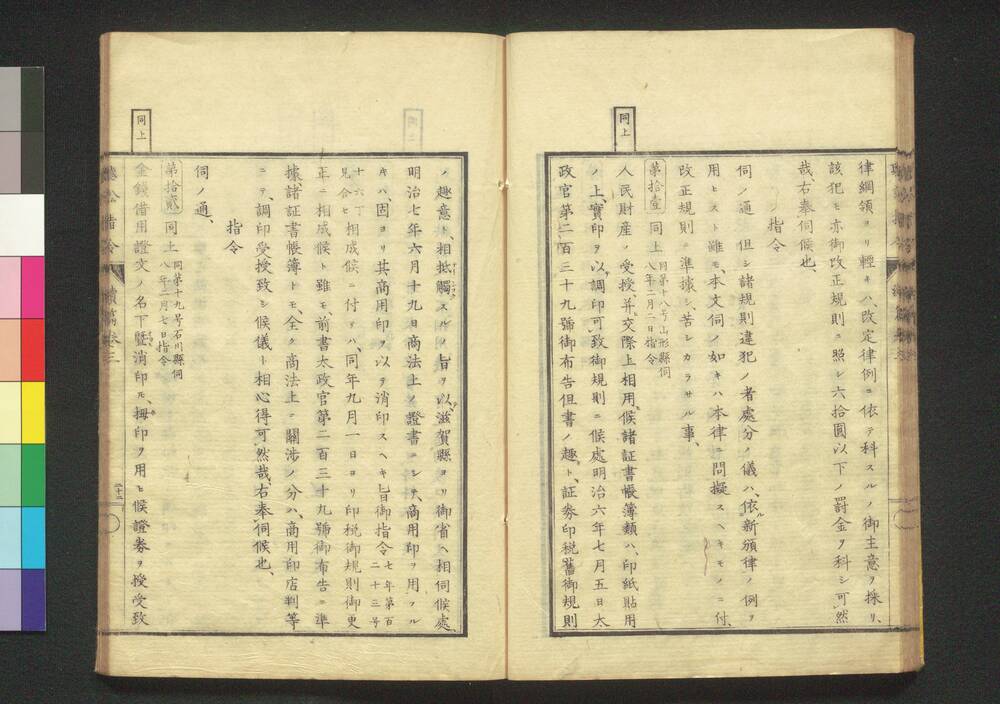 律綱領ヨリ輕キハ、改定律例ニ依テ科スルノ御主意ヲ採リ、
該犯モ亦御改正規則ニ照シ六拾圓以下ノ罰金ヲ科シ可然
哉、右奉伺候也、
指令
伺ノ通 但シ諸規則違犯ノ者處分ノ儀ハ、依ル新頒律ノ例ヲ
用ヒスト雖モ、本文伺ノ如キハ本律ニ問擬スヘキモノニ付、
改正規則ニ準據シ苦シカラサル事、
同上
第拾壹 同上 同第十八号山形縣伺
八年二月二日指令
人民財産ノ受授、并交際上相用候諸証書帳簿類ハ、印紙貼用
ノ上、實印ヲ以調印可致御規則ニ候處明治六年七月五日太
政官第二百三十九號御布告但書ノ趣ト、証劵印税舊御規則
ノ趣意ト、相抵觸スルノ旨ヲ以、滋賀縣ヨリ御省ヘ相伺候處、
明治七年六月十九日商法上ノ證書ニシテ、商用印ヲ用フル
キハ、因ヨリ其商用印ヲ以テ消印スヘキ旨御指令七年第百
二十三号
十六丁
見合ヒ相成候ニ付テハ、同年九月一日ヨリ印税御規則御更
正ニ相成候ト雖モ、前書太政官第二百三十九號御布告ニ準
據諸証書帳簿トモ、全ク商法上ニ關渉ノ分ハ、商用印店判等
ニテ、調印受授致シ候儀ト相心得可然哉、右奉伺候也、
指令
伺ノ通、
同上
第拾貳 同上 同第十九号石川縣伺
八年二月七日指令
金錢借用證文ノ名下曁消印モ、拇印ヲ用ヒ候證劵ヲ授受致
續篇卷三
二十三